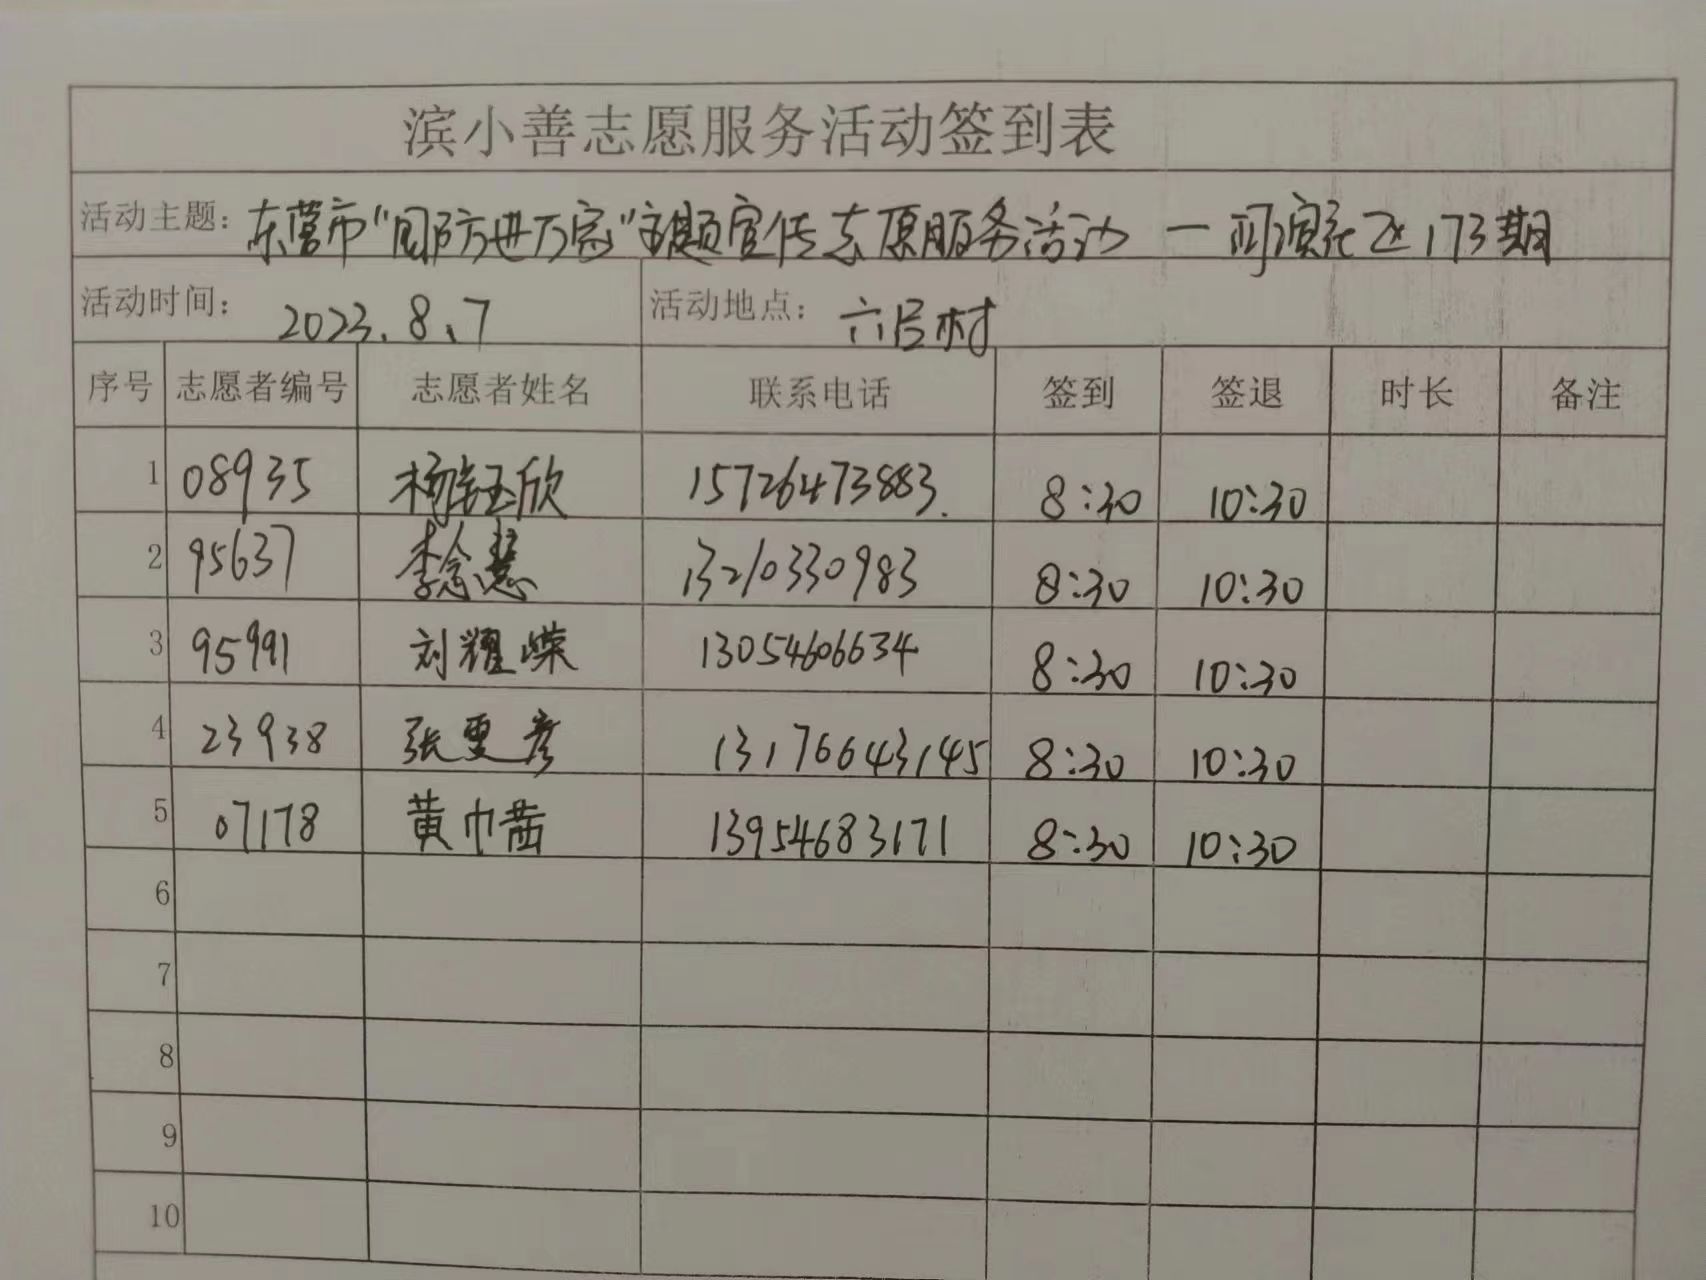 滨小善志愿服务活动签到表
活动主题：东营市“国防进万家”主题宣传志愿服务活动 — 河滨社区173期
活动时间： 2023.8、7 活动地点： 六号村
序号 志愿者编号 志愿者姓名 联系电话 签到 签退 时长 备注
1 08935 杨钰欣 15726473883. 8:30 10:30
2 95637 李念慧 13210330983 8:30 10:30
3 95991 刘耀嵘 13054606634 8:30 10:30
4 23938 张更彦 13176643145 8:30 10:30
5 07178 黄巾茜 13954683171 8:30 10:30
6
7
8
9
10